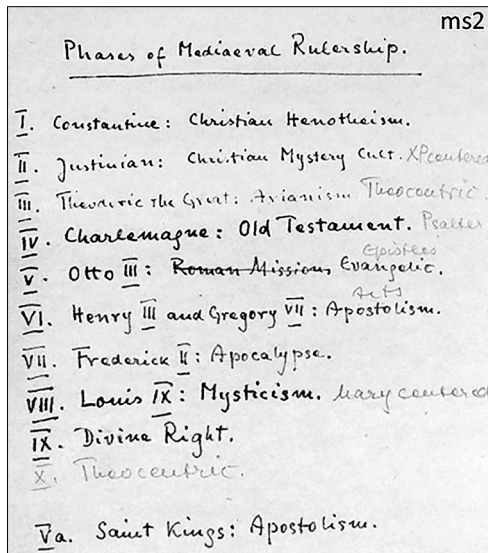 ms2
Phases of Mediaeval Rulership.
I. Constantine: Christian Henotheism.
II. Justinian: Christian Mystery Cult. XPcentered
III. Theoderic the Great: Arianism Theocentric.
IV. Charlemagne: Old Testament. Psalter
Epistles
V. Otto III: Roman Missions Evangelic.
Acts
VI. Henry III and Gregory VII: Apostolism.
VII. Frederick II: Apocalypse.
VIII. Louis IX: Mysticism. Mary centered
IX. Divine Right.
X. Theocentric.
Va. Saint Kings: Apostolism.